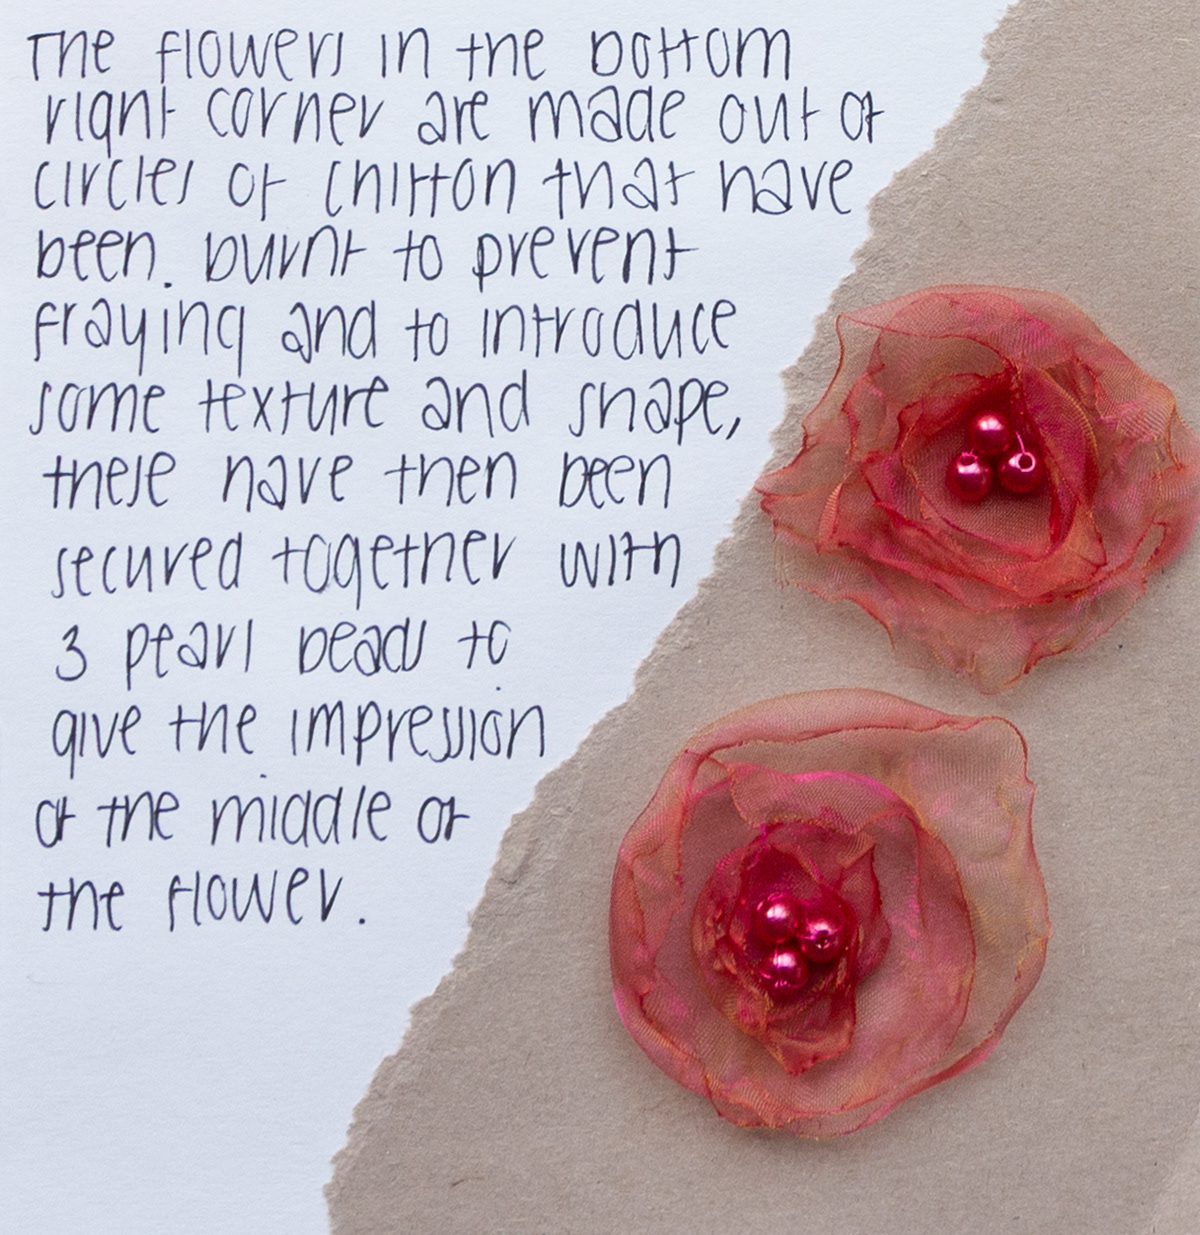 The flowers in the bottom
right corner are made out of
circles of chiffon that have
been. burnt to prevent
fraying and to introduce
some texture and shape,
these have then been
secured together with
3 pearl beads to
give the impression
of the middle of
the flower.